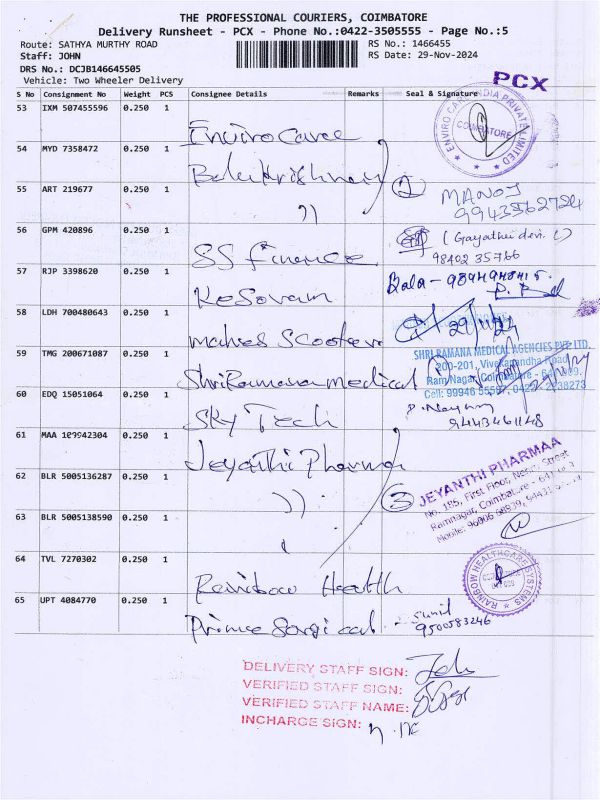 THE PROFESSIONAL COURIERS, COIMBATORE
Delivery Runsheet - PCX - Phone No.:0422-3505555 - Page No.:5
Route: SATHYA MURTHY ROAD
RS No.: 1466455
Staff: JOHN
RS Date: 29-Nov-2024
DRS No.: DCJB146645505
Vehicle: Two Wheeler Delivery
PCX
S No Consignment No Weight PCS Consignee Details Remarks Seal & Signature
53 IXM 507455596 0.250 1 Enviro Caree
ENVIRO CARE INDIA PRIVATE LIMITED
COIMBATORE
54 MYD 7358472 0.250 1 Balakrishnan
55 ART 219677 0.250 1 ))
2 MANOJ
9943562724
56 GPM 420896 0.250 1 SS Finance
(Gayathri devi. C)
98402 35766
57 RJP 3398620 0.250 1 Kesavam
Bala - 9894948415.
58 LDH 700480643 0.250 1 mahes Scooters
29/11/24
59 TMG 200671087 0.250 1 Shri Ramana medical
SHRI RAMANA MEDICAL AGENCIES PVT LTD.
200-201, Vivekanandha
Ram Nagar, Coimbatore - 641 009.
Cell: 99946 55597, 0422-2238273
60 EDQ 15051064 0.250 1 Sky Tech
9443461148
61 MAA 109942304 0.250 1 Jeyanthi Pharma
62 BLR 5005136287 0.250 1 ))
3
JEYANTHI PHARMAA
No. 185, First Floor, Nehru Street
Ramnagar, Coimbatore - 641
Mobile:
63 BLR 5005138590 0.250 1
64 TVL 7270302 0.250 1 Rainbow Health
RAINBOW HEALTHCARE SYSTEMS
65 UPT 4084770 0.250 1 Prime Sorgical
Sunil
9500583246
DELIVERY STAFF SIGN: John
VERIFIED STAFF SIGN:
VERIFIED STAFF NAME:
INCHARGE SIGN: